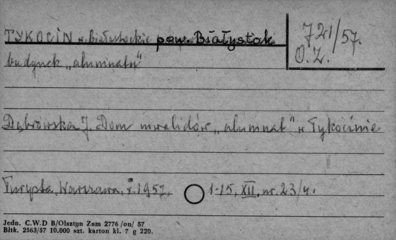 TYKOCIN w. Białostockie pow. Białystok
721/57.
O.Z.
budynek „alumnatu"
Dąbrowska J. Dom inwalidów „alumnat" w Tykocinie
Turysta, Warszawa, r. 1957. 1-15. XII, nr. 23/4.
Jedn. C.W.D B/Olsztyn Zam 2776 /on/ 57
Błtk. 2563/57 10.000 szt. karton kl. 7 g 220.